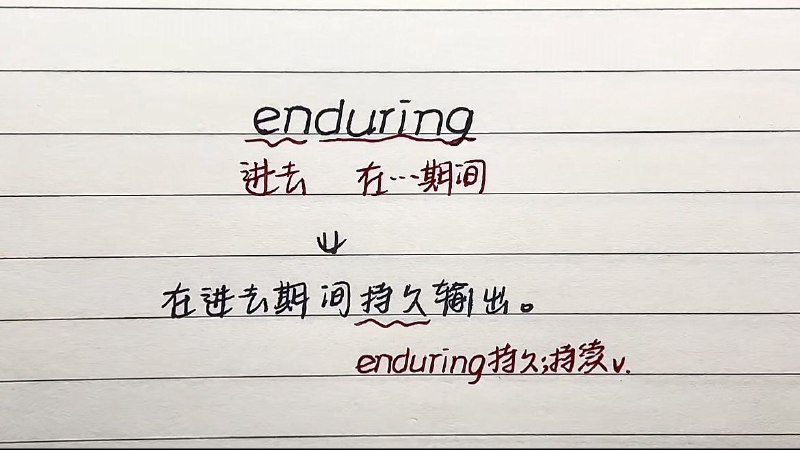 enduring
进去 在…期间
在进去期间持久输出。
enduring持久;持续v.